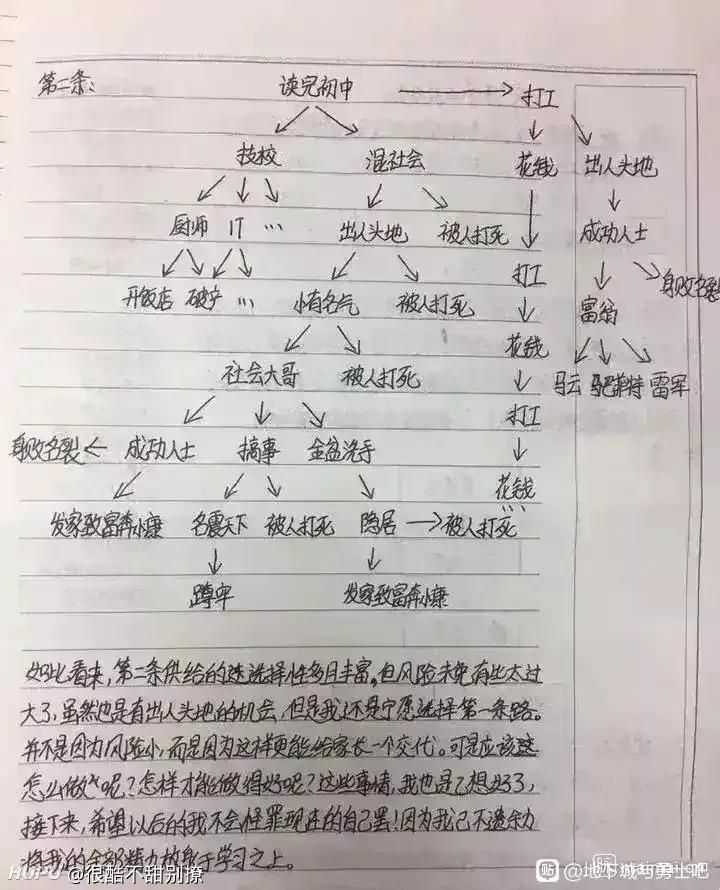 第二条：
读完初中 打工
技校 混社会 花钱 出人头地
厨师 IT … 出人头地 被人打死 成功人士
打工 身败名裂
开饭店 破产 … 小有名气 被人打死 富翁
花钱
社会大哥 被人打死 马云 马化腾 雷军
打工
身败名裂 成功人士 搞事 金盆洗手
花钱
…
发家致富奔小康 名震天下 被人打死 隐居 被人打死
蹲牢 发家致富奔小康
如此看来，第二条供给的选选择性多且丰富。但风险未免有些太过
大了，虽然也是有出人头地的机会，但是我还是宁愿选择第一条路。
并不是因为风险小，而是因为这样更能给家长一个交代。可是应该
怎么做呢？怎样才能做得好呢？这些事情，我也是已想好了，
接下来，希望以后的我不会怪罪现在的自己罢！因为我已不遗余力
将我的全部精力放到于学习之上。
HUPU @很酷不甜别撩
贴 @地下城与勇士吧